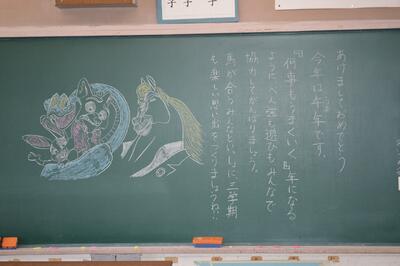 あけましておめでとう
今年は午年です。
『何事もうまくいく』年になる
ように べん強も遊びもみんなで
協力してがんばりましょう。
馬が合うみんなといっしょに三学期
も楽しい思い出をつくりましょうね!